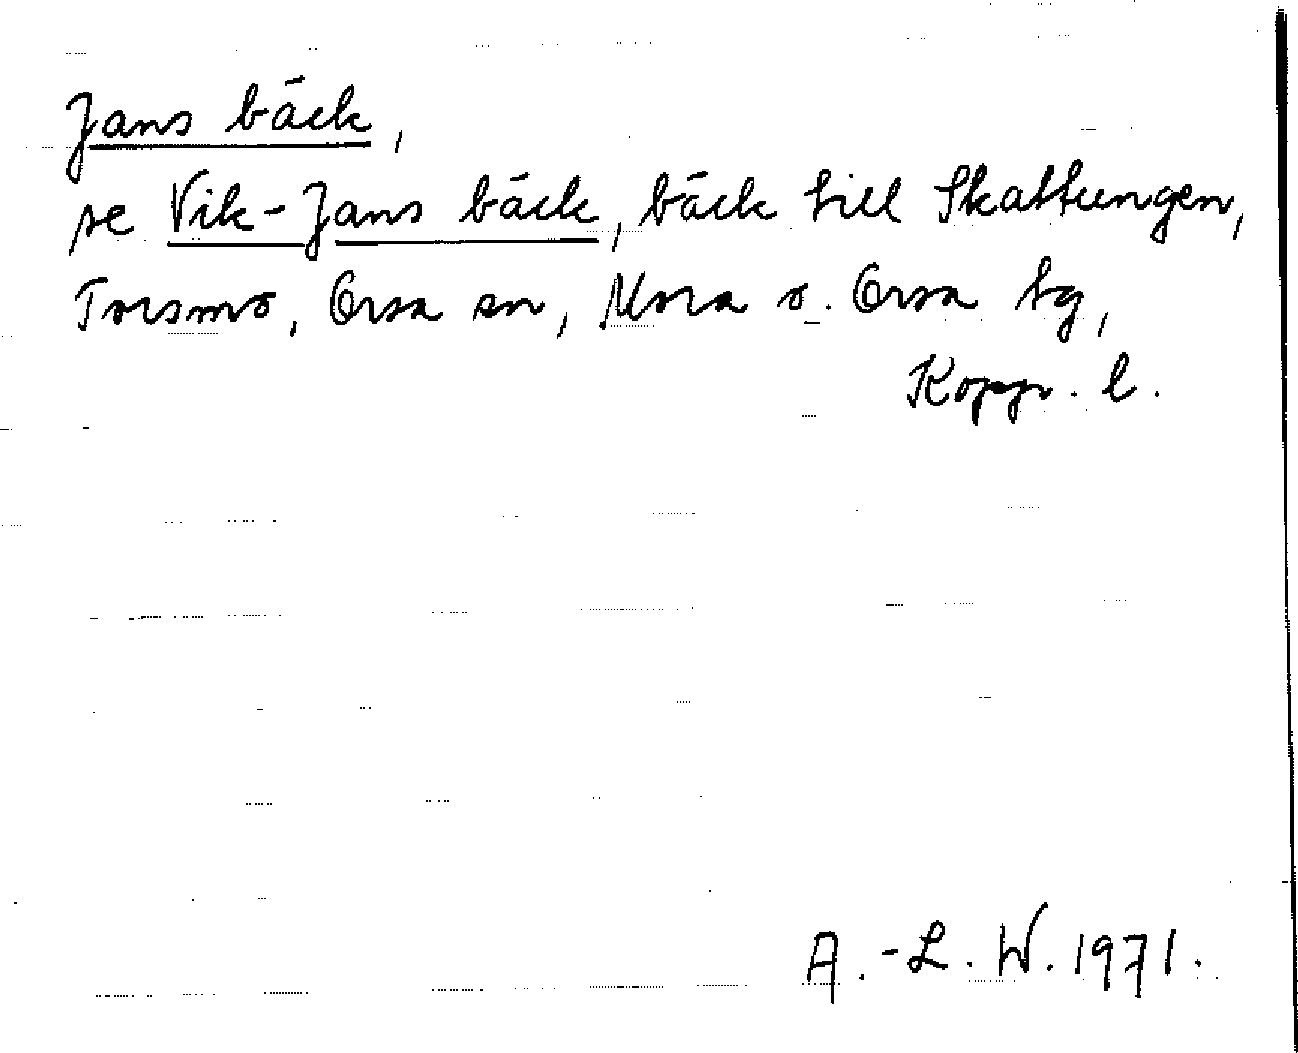 Jans bäck,
se Vik-Jans bäck, bäck till Skattungen,
Torsmo, Orsa sn, Mora o. Orsa tg,
Kopp. l.
A.-L. W. 1971.